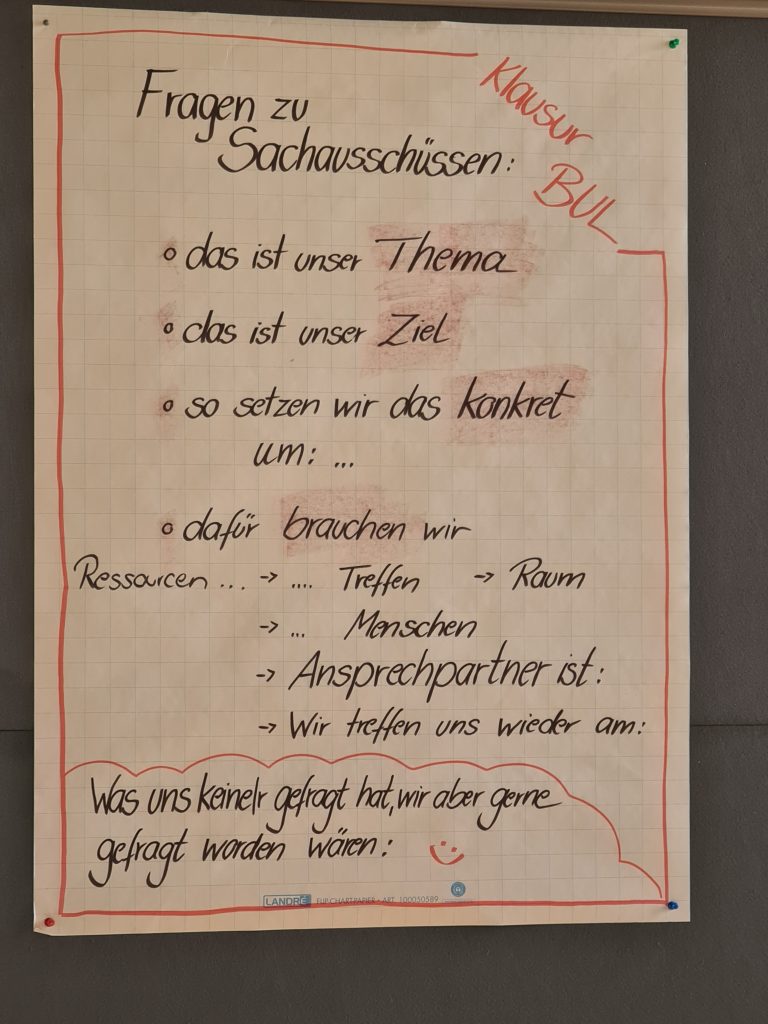 Klausur
BUL
Fragen zu
Sachausschüssen:
o das ist unser Thema
o das ist unser Ziel
o so setzen wir das konkret
um: ...
o dafür brauchen wir
Ressourcen ... -> .... Treffen -> Raum
-> ... Menschen
-> Ansprechpartner ist:
-> Wir treffen uns wieder am:
Was uns keine/r gefragt hat, wir aber gerne
gefragt worden wären:
LANDRÉ FLIPCHARTPAPIER • ART. 100050589